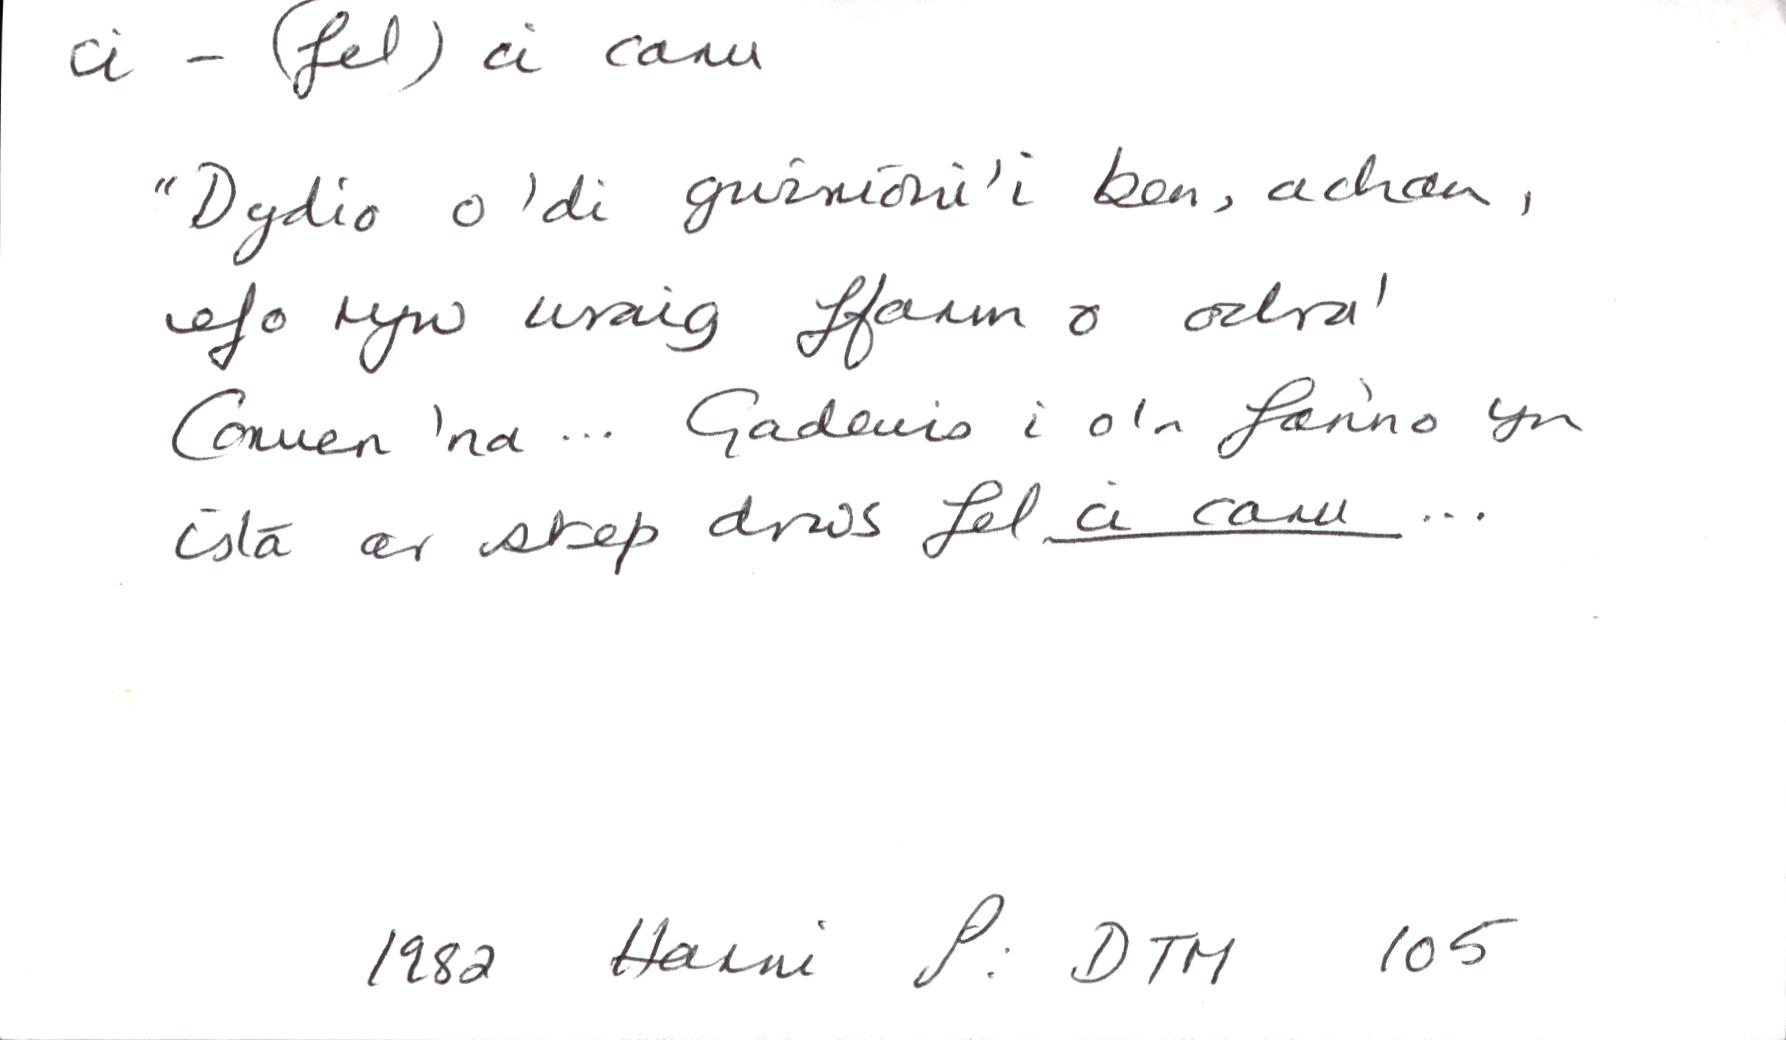 ci - (fel) ci canu
"Dydio o 'di gwirioni'i ben, achan,
efo ryw wraig ffarm o ochra'
Conwen 'na ... Gadewis i o'n fan'no yn
ista ar step drws fel ci canu ...
1982 Harri P: DTM 105